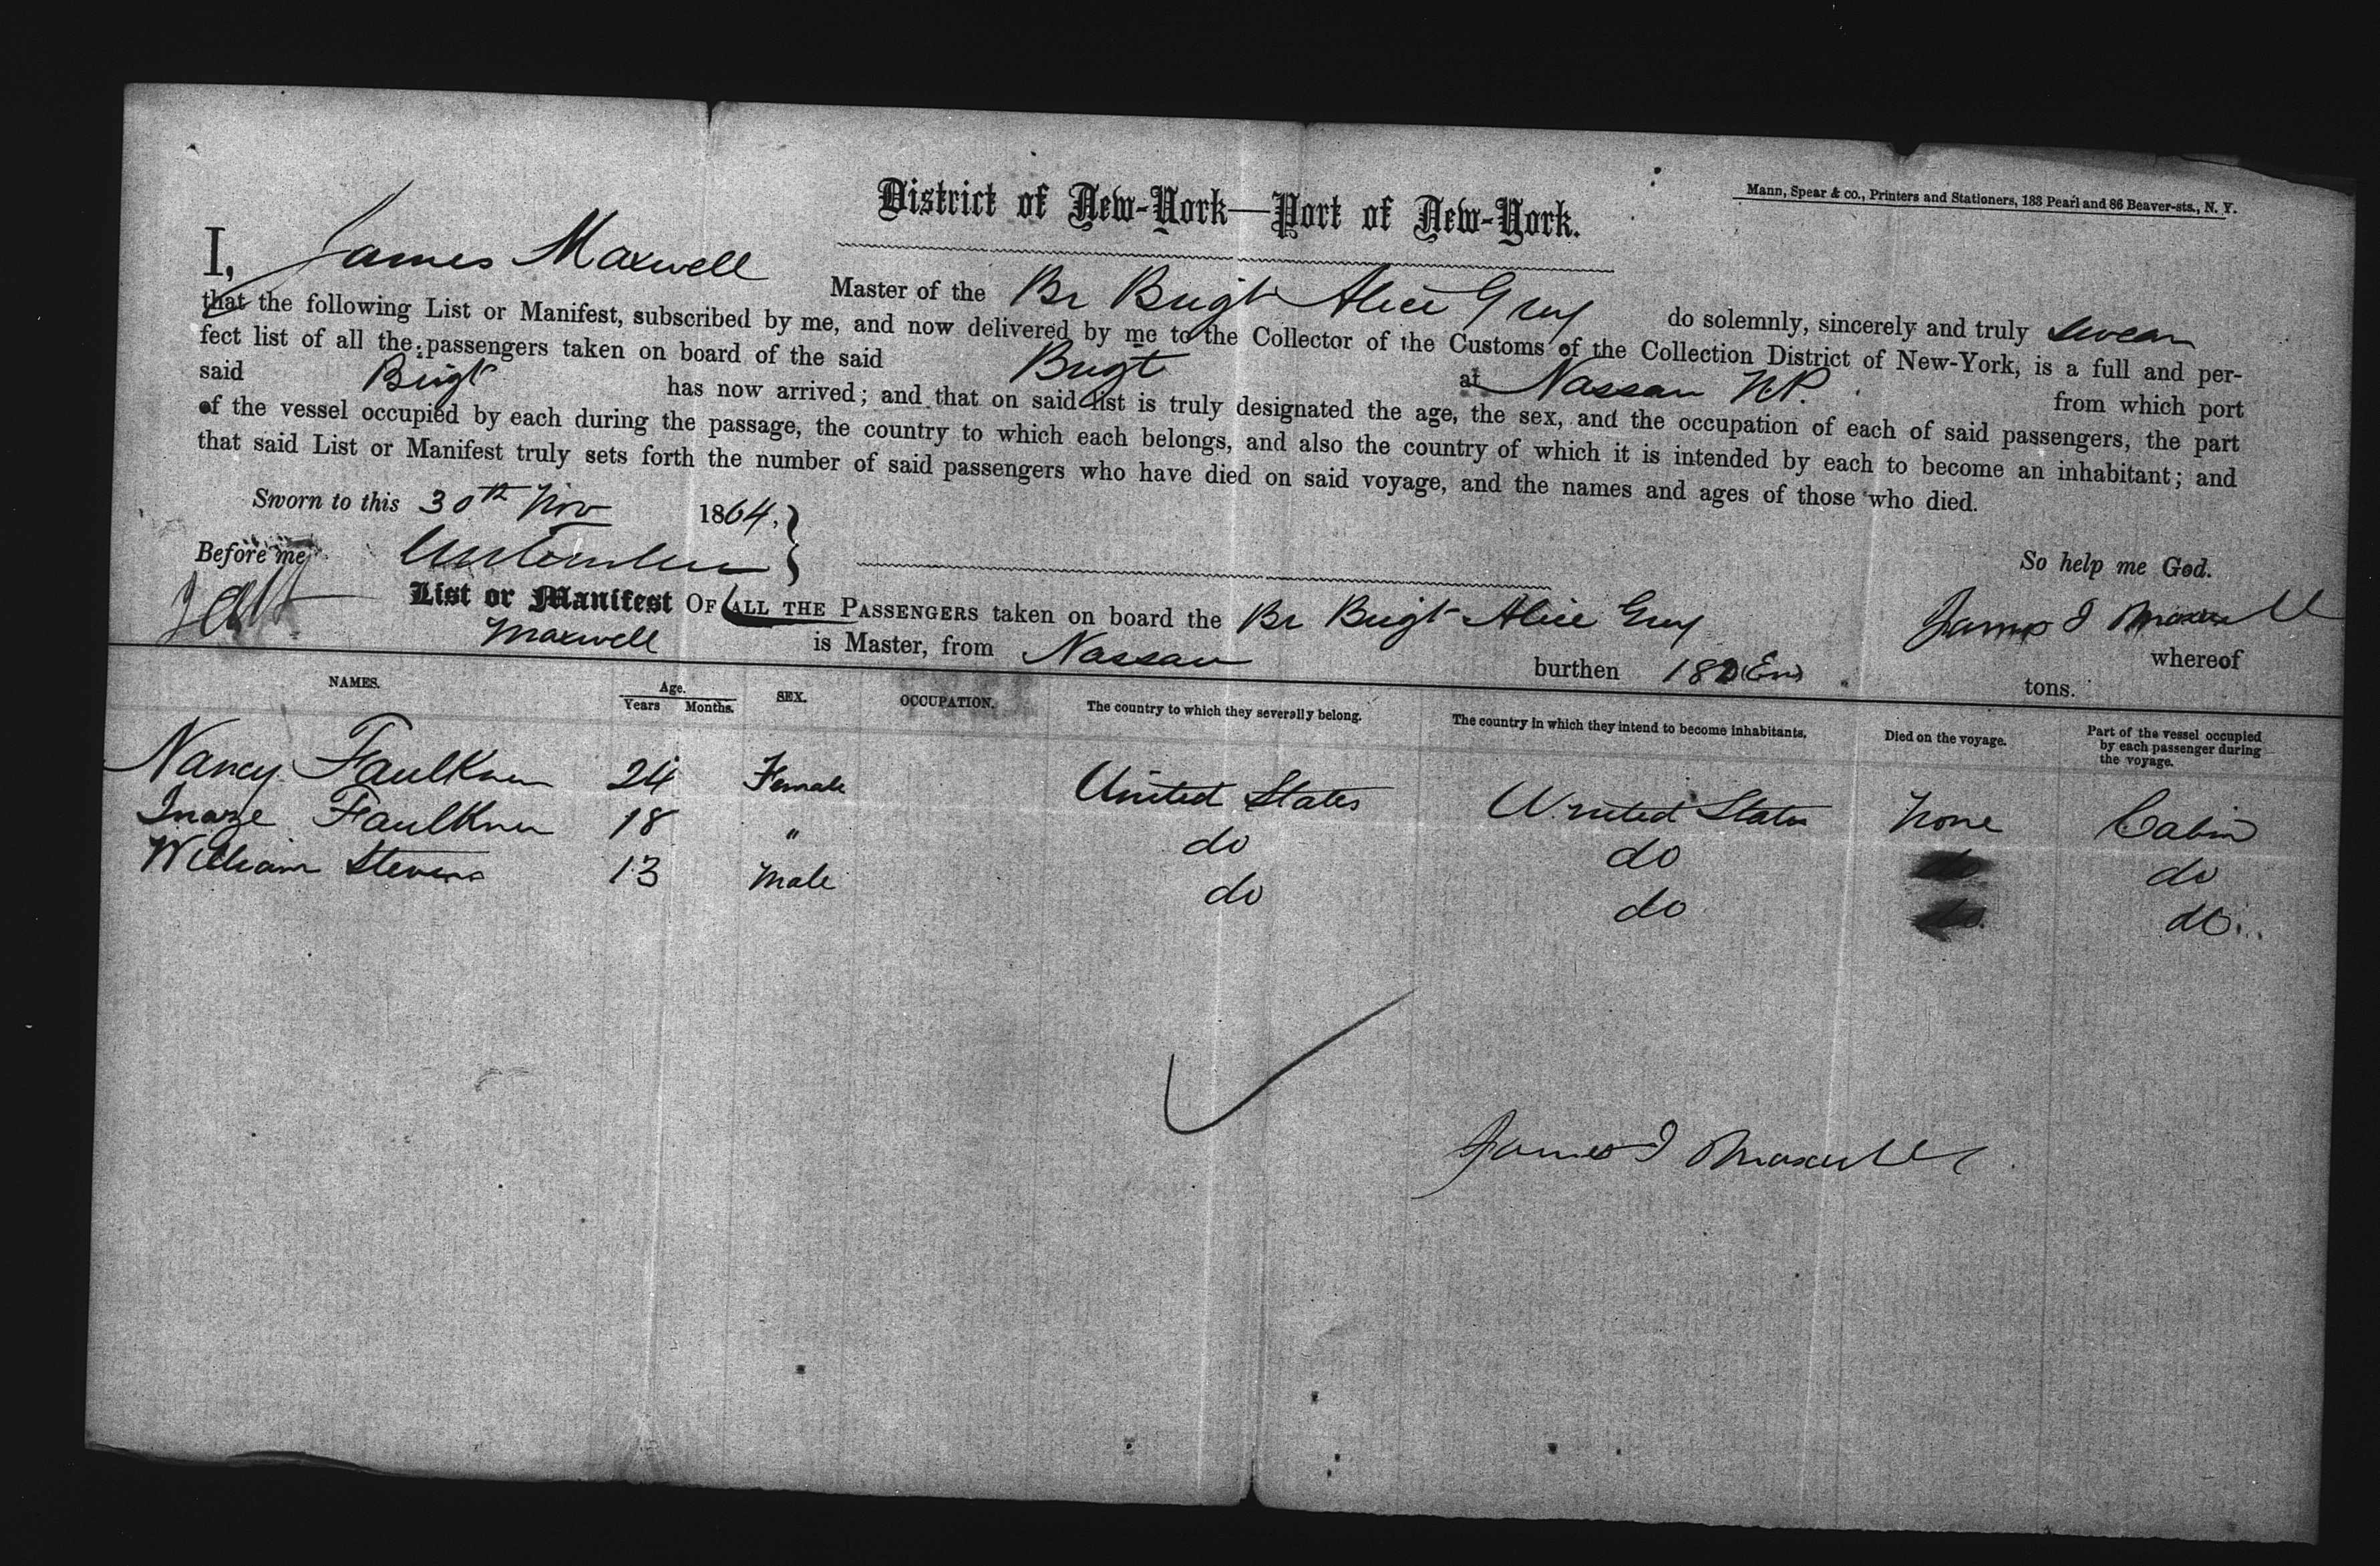 Mann, Spear & co., Printers and Stationers, 183 Pearl and 86 Beaver-sts., N. Y.
District of New-York—Port of New-York.
I, James Maxwell Master of the Br Brigt Alice Grey do solemnly, sincerely and truly swear
that the following List or Manifest, subscribed by me, and now delivered by me to the Collector of the Customs of the Collection District of New-York, is a full and per-
fect list of all the passengers taken on board of the said Brigt at Nassau N.P. from which port
said Brigt has now arrived; and that on said list is truly designated the age, the sex, and the occupation of each of said passengers, the part
of the vessel occupied by each during the passage, the country to which each belongs, and also the country of which it is intended by each to become an inhabitant; and
that said List or Manifest truly sets forth the number of said passengers who have died on said voyage, and the names and ages of those who died.
Sworn to this 30th Nov 1864,
So help me God.
Before me
James J Maxwell
List or Manifest OF ALL THE PASSENGERS taken on board the Br Brigt Alice Grey whereof
Maxwell is Master, from Nassau burthen tons.
NAMES. Age. Years Months. SEX. OCCUPATION. The country to which they severally belong. The country in which they intend to become inhabitants. Died on the voyage. Part of the vessel occupied by each passenger during the voyage.
Nancy Faulkner 24 Female United States United States None Cabin
Faulkner 18 " do do do
William Stevens 13 Male do do do
James J Maxwell